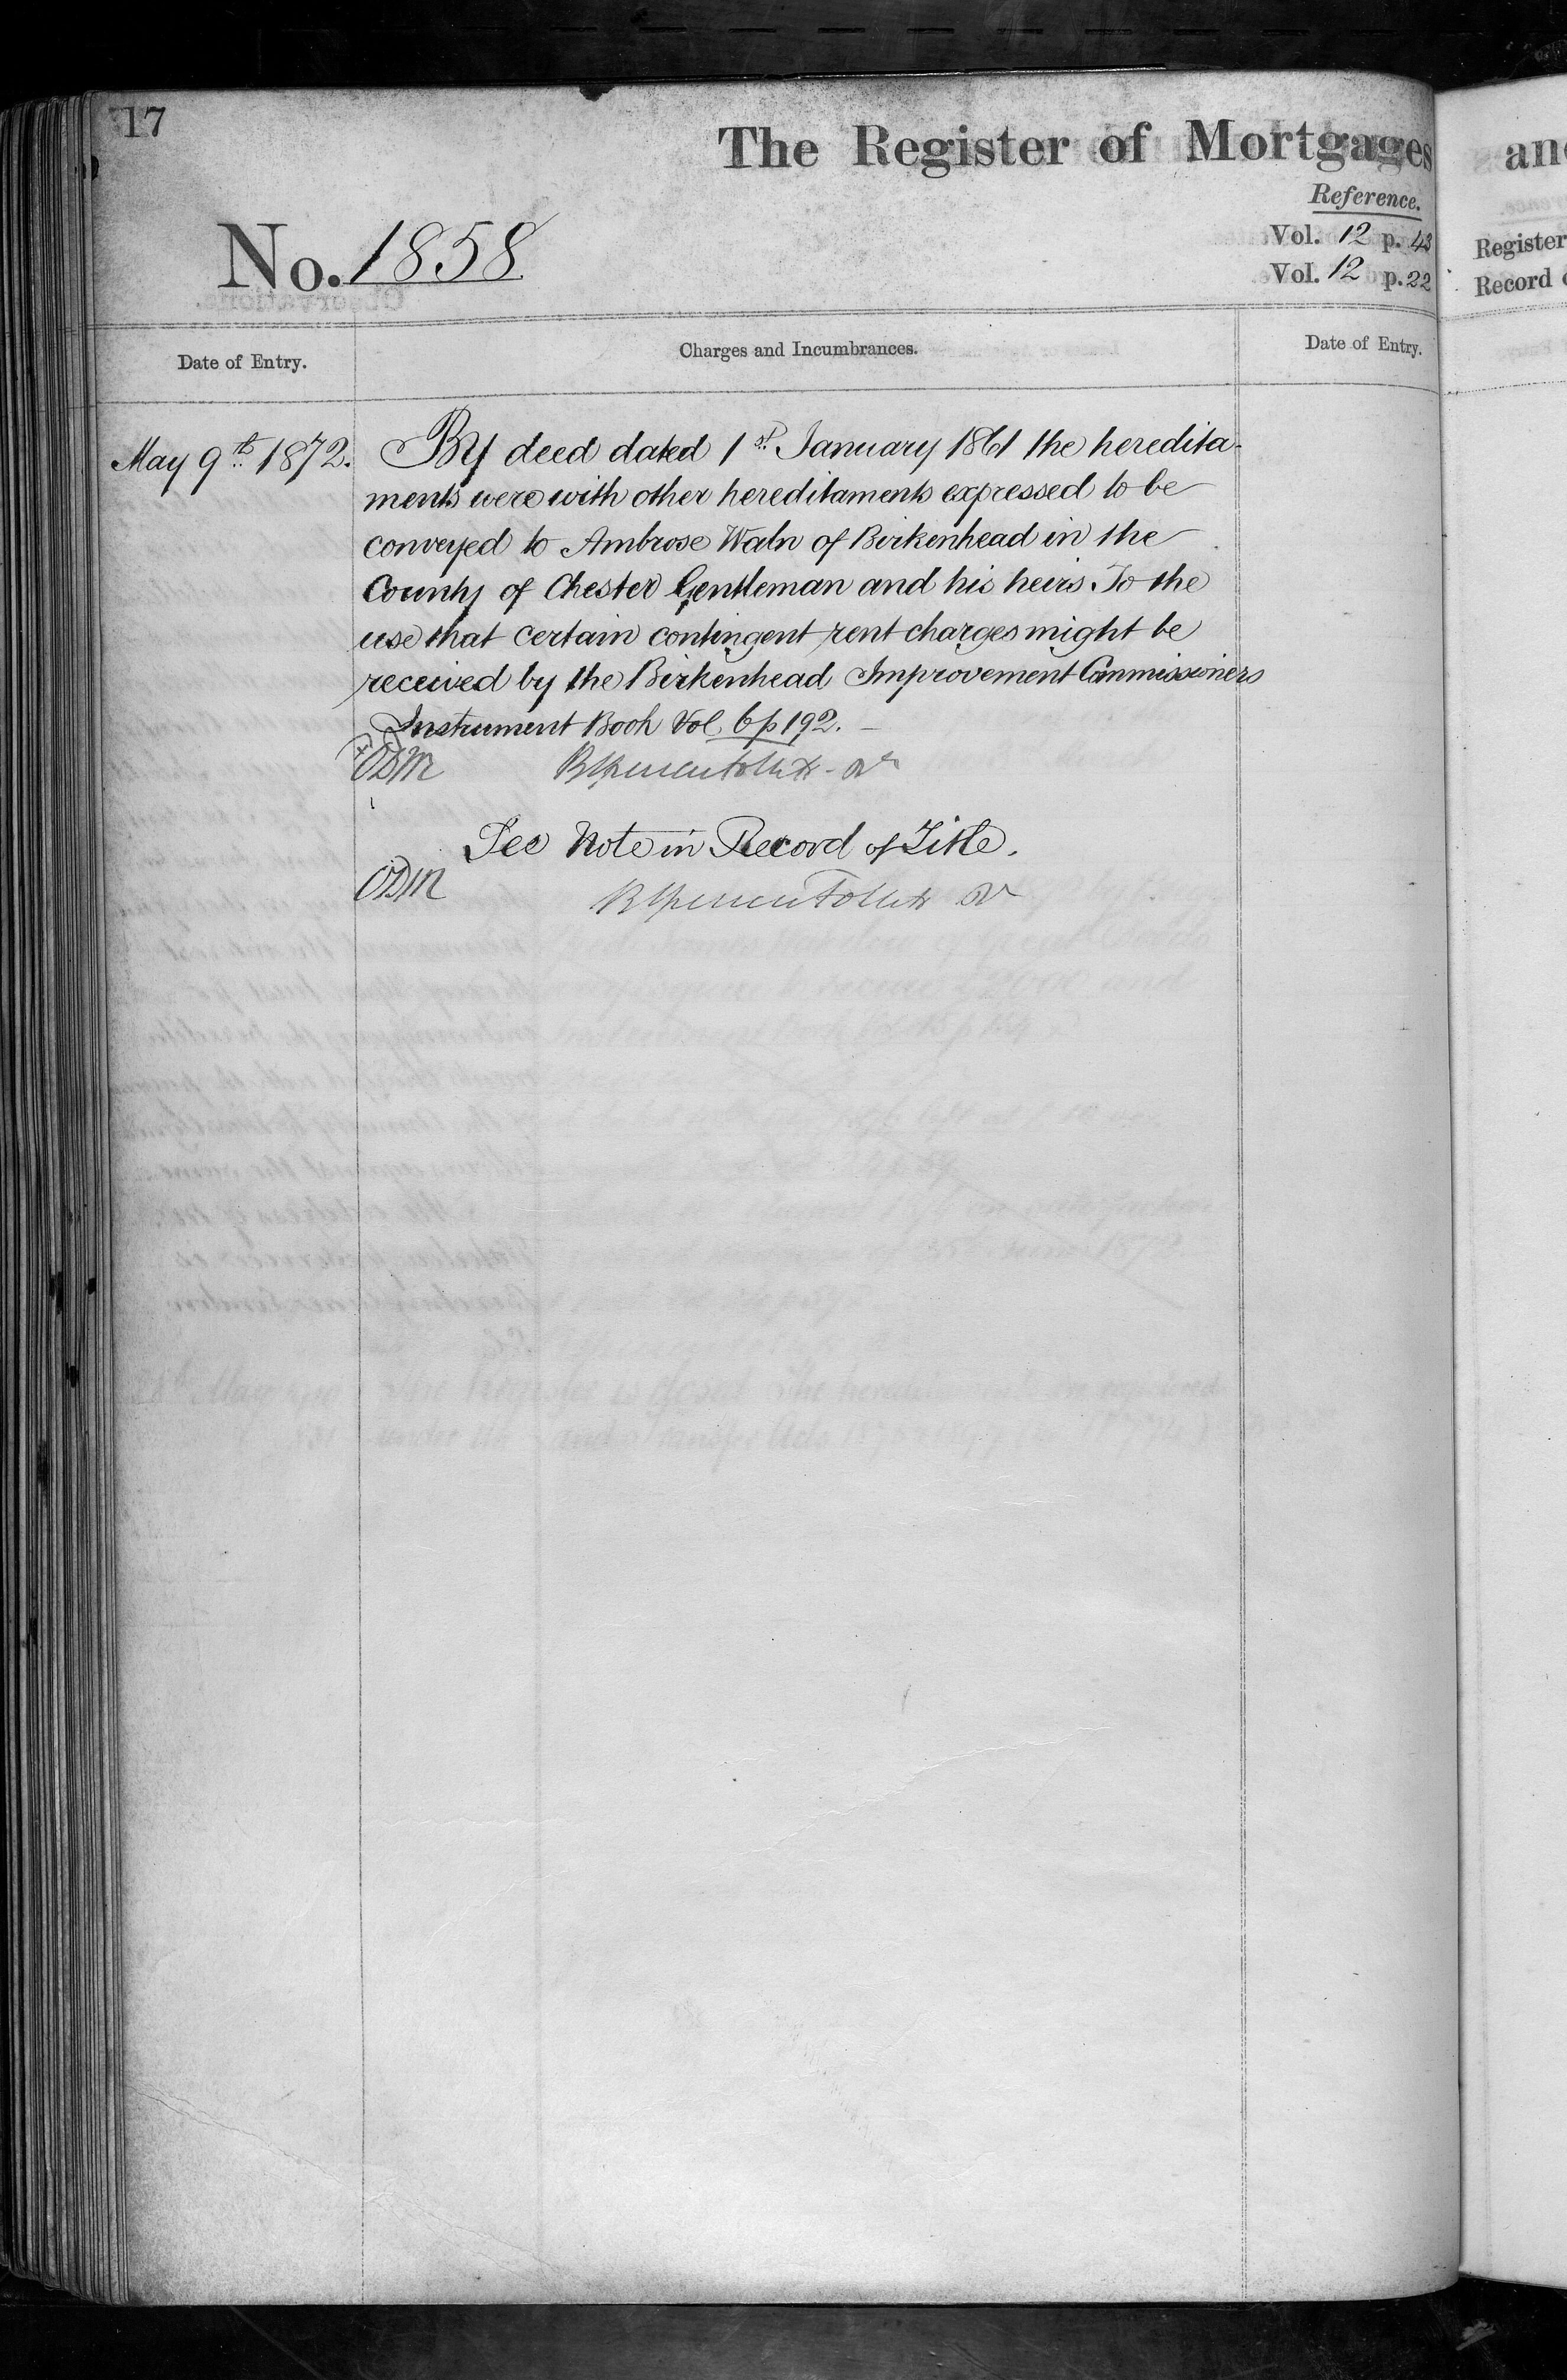 17
The Register of Mortgages
an
Reference.
No. 1858
Vol. 12 p. 43
Register
Vol. 12 p. 22
Record
Date of Entry.
Charges and Incumbrances.
Date of Entry.
May 9th 1872.
By deed dated 1st January 1861 the heredita-
ments were with other hereditaments expressed to be
conveyed to Ambrose Waln of Birkenhead in the
County of Chester Gentleman and his heirs. To the
use that certain contingent rent charges might be
received by the Birkenhead Improvement Commissioners
Instrument Book Vol 6 p 192.
ODM
See Note in Record of Title.
ODM